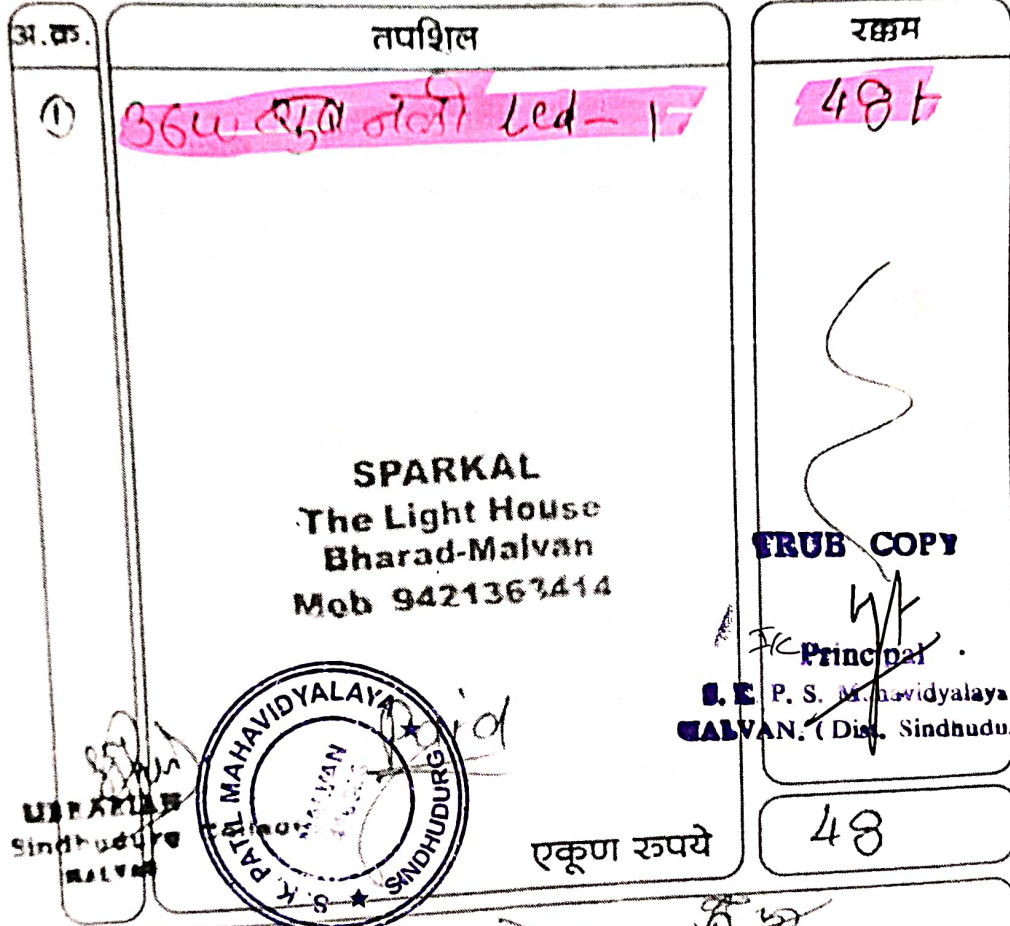 अ.क्र. तपशिल रक्कम
① 36W ट्युब नली Led - 1 48
SPARKAL
The Light House
Bharad-Malvan
Mob 9421363414
TRUB COPY
I/C Principal
S. K. P. S. Mahavidyalaya
MALVAN. (Dist. Sindhudu
Paid
S. K. PATIL MAHAVIDYALAYA ★ SINDHUDURG ★
MALVAN
LIBRARIAN
Sindhudurg
MALVAN
एकूण रुपये 48